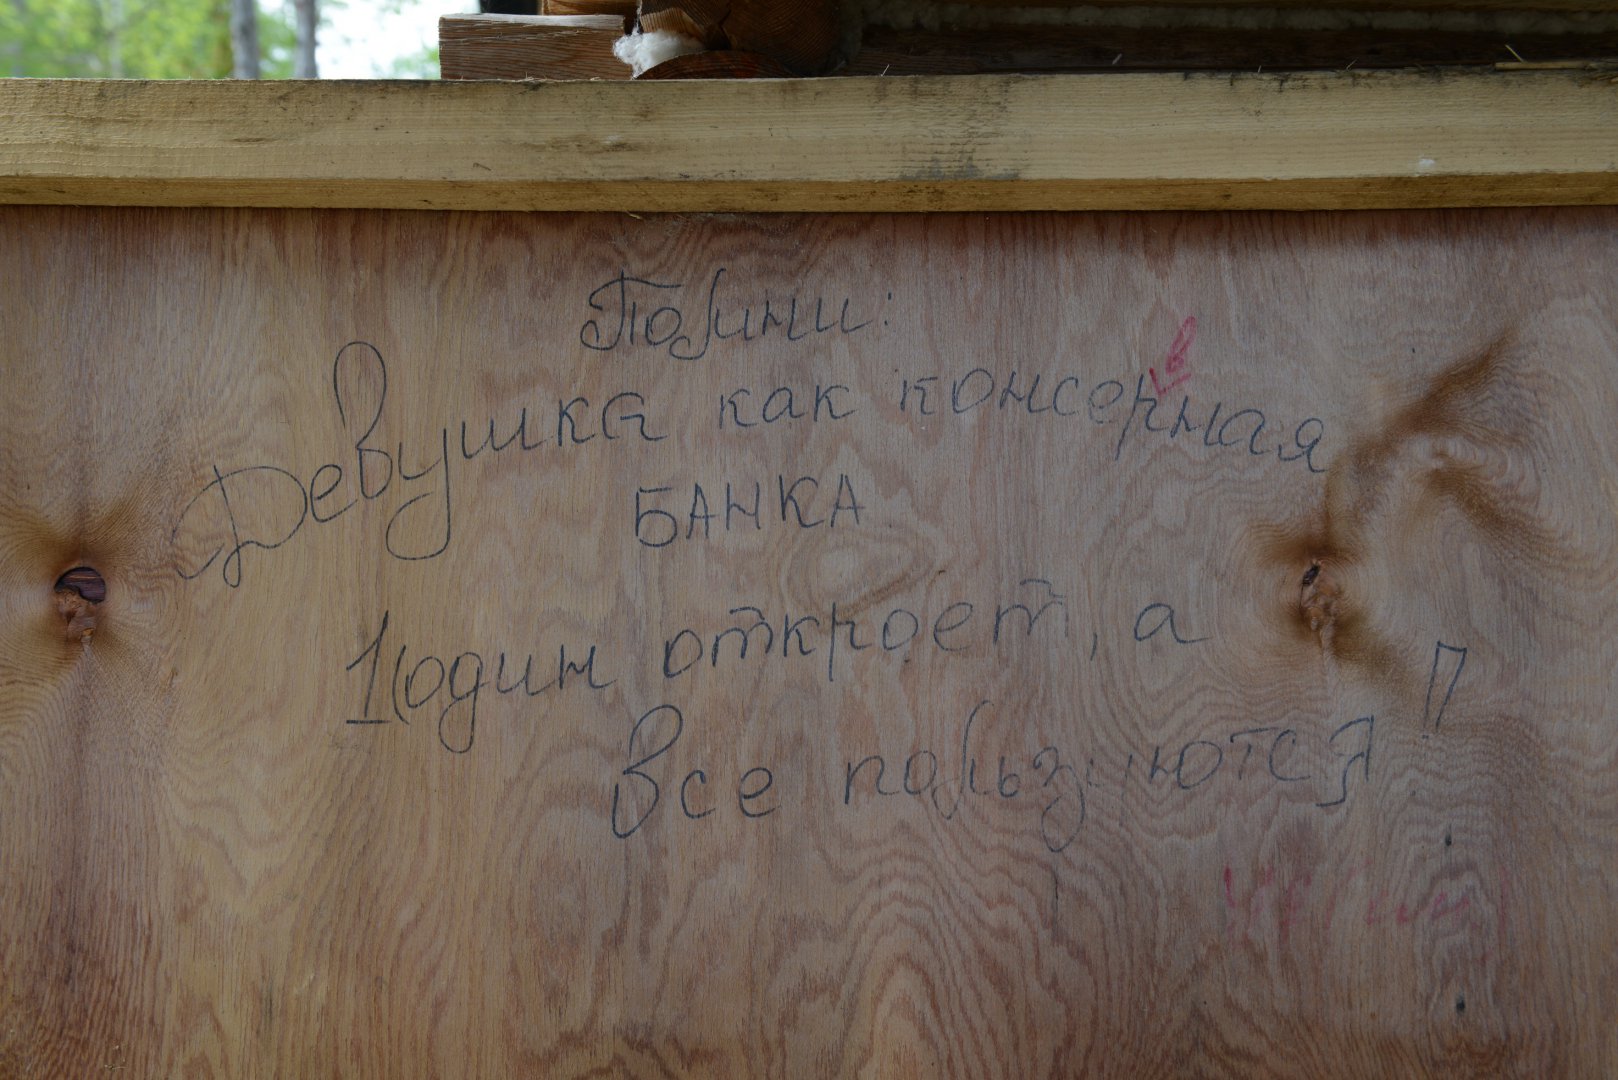 Помни:
Девушка как консервная
БАНКА
1(один откроет, а
все пользуются!